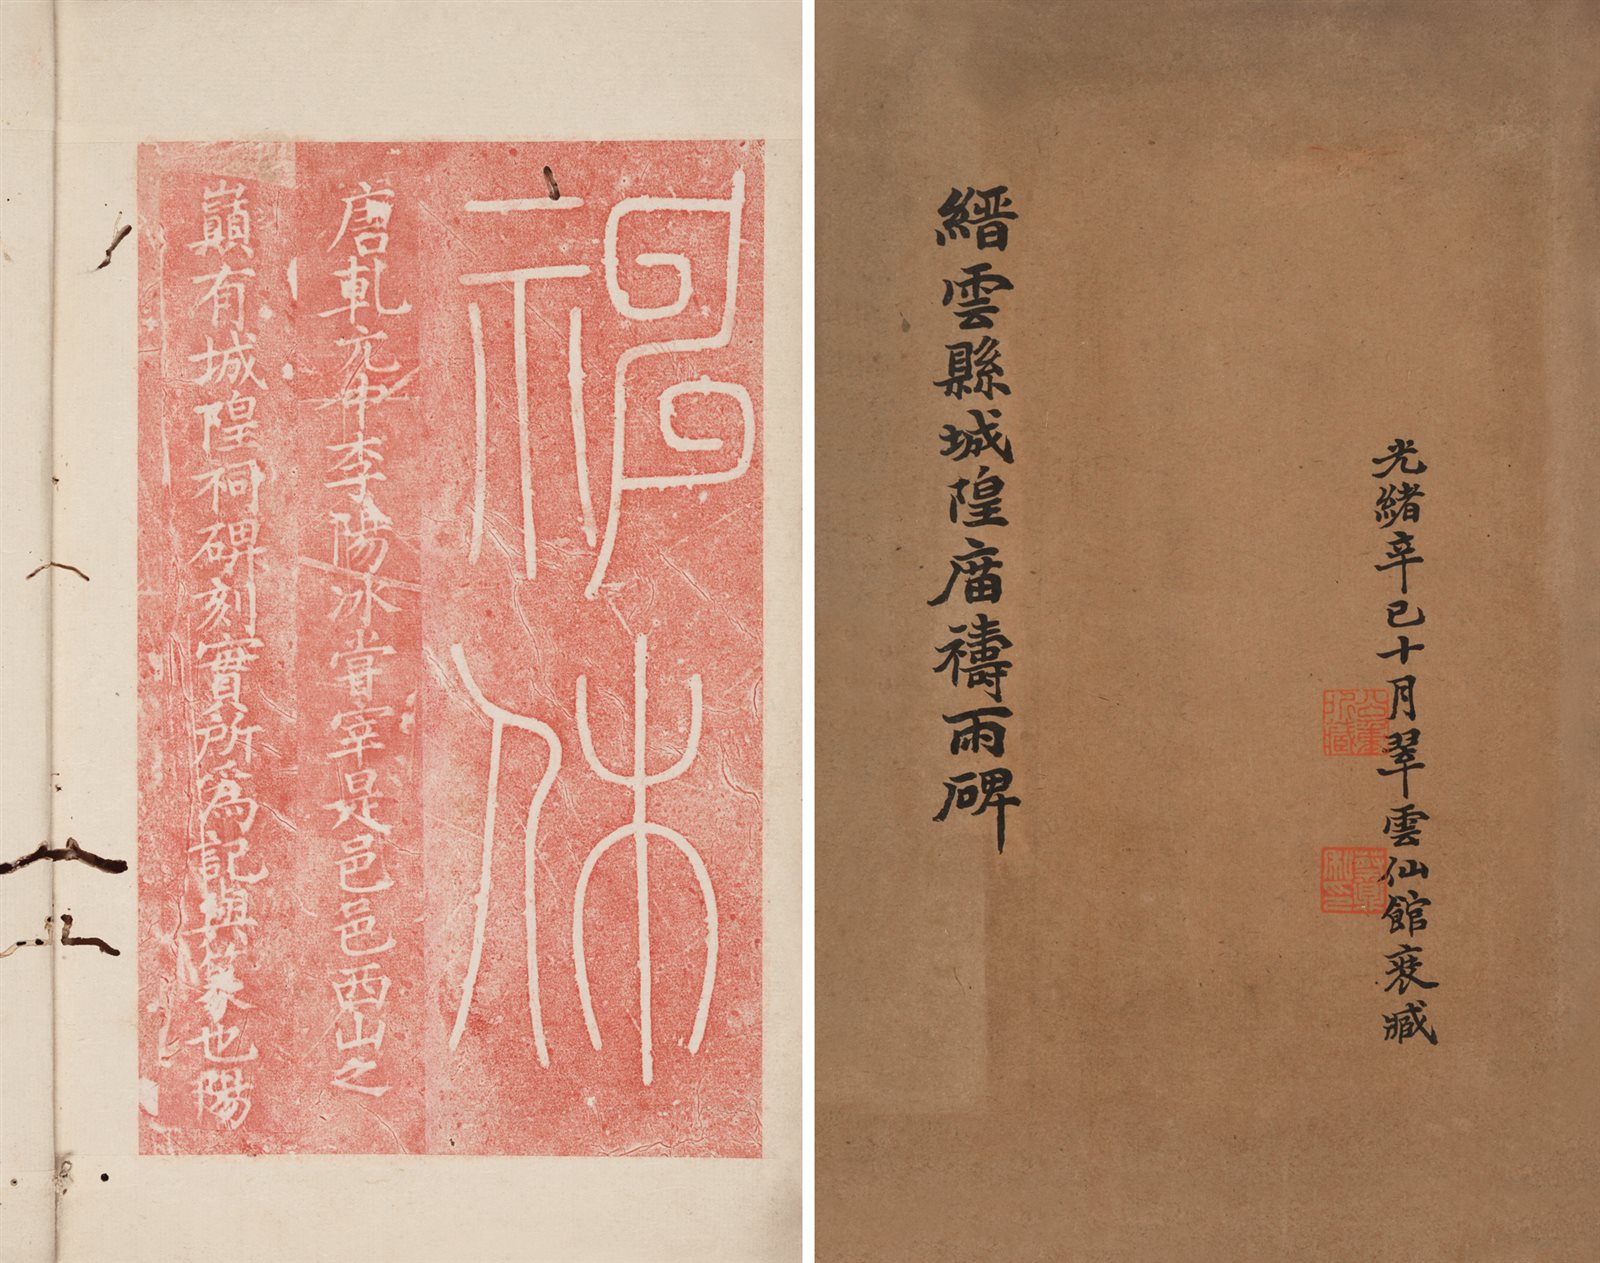 光緒辛巳十月翠雲仙館裒臧
縉雲縣城隍庿禱雨碑
神休
唐乹元中李陽冰嘗宰是邑邑西山之
巔有城隍祠碑刻實所爲記與篆也陽